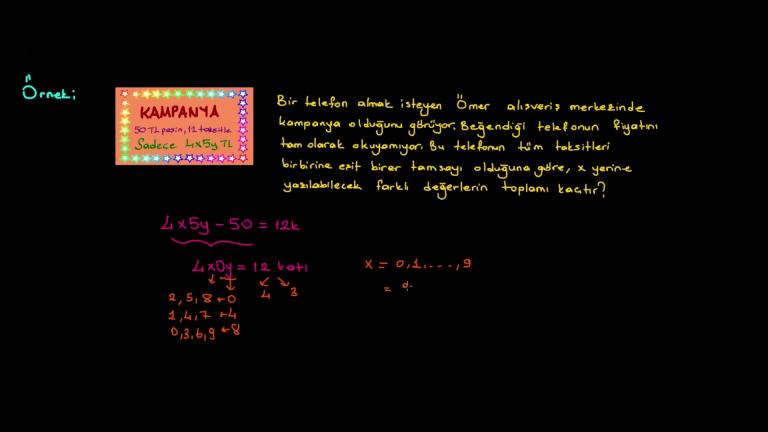 Örnek:
KAMPANYA
50 TL peşin, 12 taksitle
Sadece 4x5y TL
Bir telefon almak isteyen Ömer alışveriş merkezinde
kampanya olduğunu görüyor. Beğendiği telefonun fiyatını
tam olarak okuyamıyor. Bu telefonun tüm taksitleri
birbirine eşit birer tamsayı olduğuna göre, x yerine
yazılabilecek farklı değerlerin toplamı kaçtır?
4x5y - 50 = 12k
4x0y = 12 katı
4 3
2,5,8 ← 0
1,4,7 ← 4
0,3,6,9 ← 8
x = 0,1,...,9
=